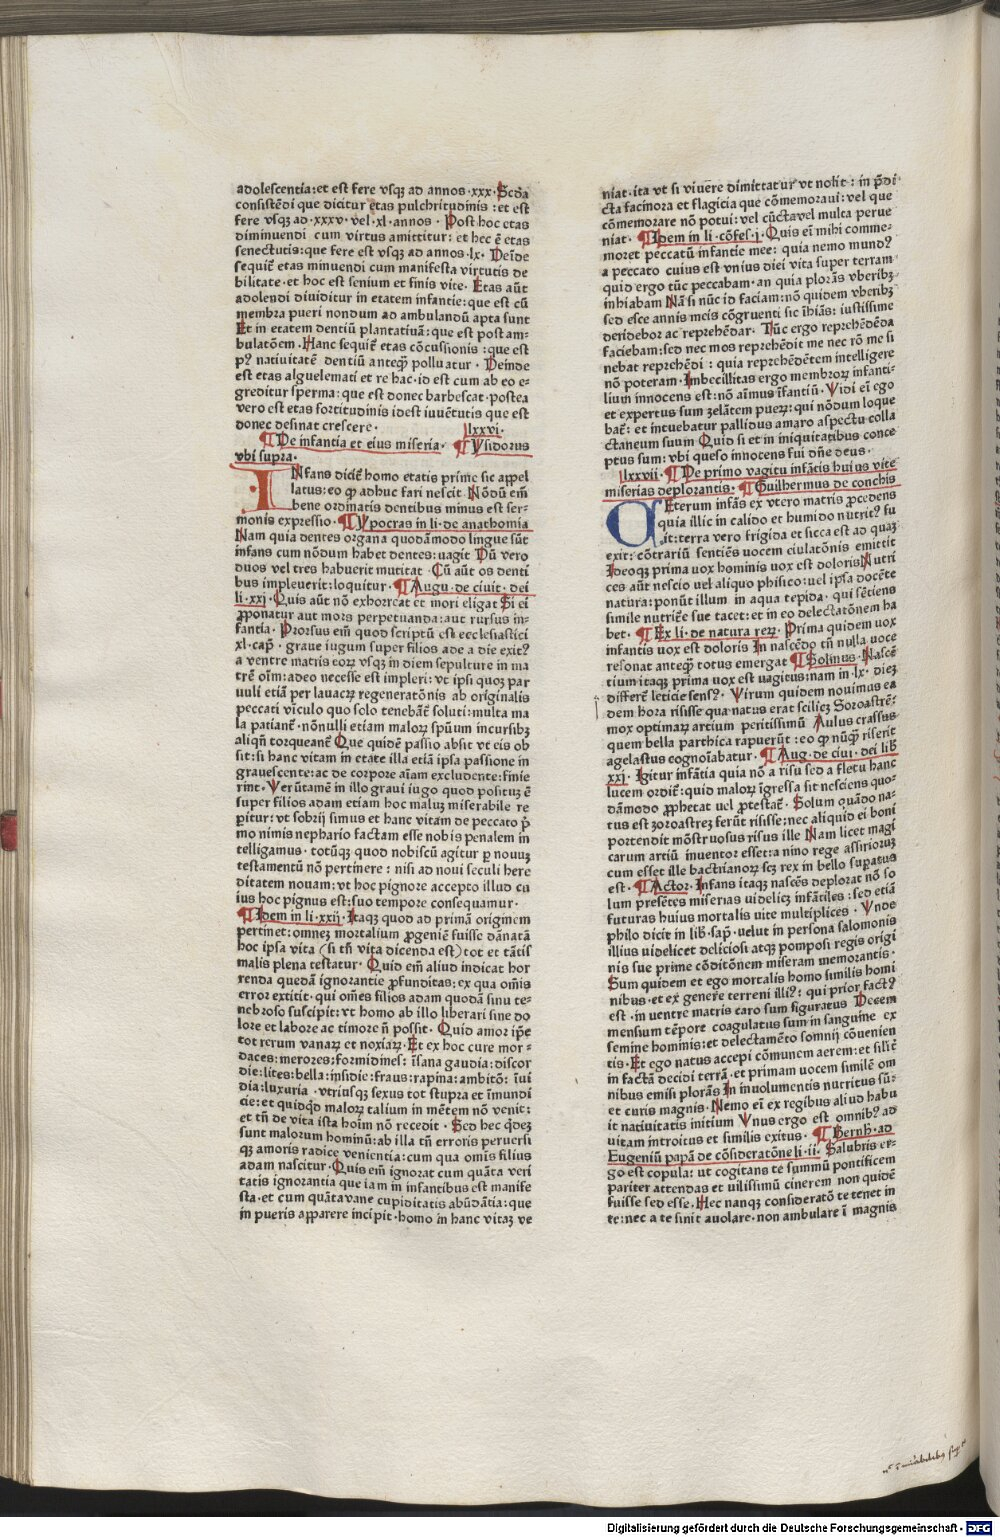 adolescentia:et est fere vsqꝫ ad annos·xxx·Scďa
consistēdi que dicitur etas pulchritudinis :et est
fere vsqꝫ ad·xxxv·vel·xl·annos· Post hoc etas
diminuendi cum virtus amittitur: et hec ē etas
senectutis:que fere est vsqꝫ ad annos·lx· Deīde
sequit̄ etas minuendi cum manifesta virtutis de
bilitate·et hoc est senium et finis vite· Etas aūt
adolendi diuiditur in etatem infantie:que est cū
membra pueri nondum ad ambulandū apta sunt
Et in etatem dentiū plantatiuā:que est post am⸗
bulatōem·Hanc sequit̄ etas cōcussionis :que est
pꝰ natiuitatē dentiū anteqꝫ polluatur· Deinde
est etas alguelemati et rehac·id est cum ab eo e⸗
greditur sperma:que est donec barbescat·postea
vero est etas fortitudinis idest iuuētutis que est
donec desinat crescere· lxxvi·
¶De infantia et eius miseria· ¶Ysidorus
vbi supra·
INfans dicit̄ homo etatis prime sic appel
latus:eo ꝙ adhuc fari nescit·Nōdū em̄
bene ordinatis dentibus minus est ser⸗
monis expressio·¶Ypocras in li·de anathomia
Nam quia dentes organa quodāmodo lingue sūt
infans cum nōdum habet dentes:vagit Dū vero
duos vel tres habuerit mutitat ·Cū aūt os denti
bus impleuerit:loquitur·¶Augu·de ciuit·dei
li·xxj·Quis aūt nō exhorreat et mori eligat Si ei
ꝓponatur aut mors perpetuanda:aut rursus in⸗
fantia·Prorsus em̄ quod scriptū est ecclesiastici
xl·cap̄· graue iugum super filios ade a die exitꝰ
a ventre matris eoꝝ vsqꝫ in diem sepulture in ma
trē oīm:adeo necesse est impleri:vt ipsi quoqꝫ par
uuli etiā per lauacꝝ regeneratōnis ab originalis
peccati vīculo quo solo tenebāt̄ soluti:multa ma
la patiant̄·nōnulli etiam maloꝝ sp̄uum incursibꝫ
aliqn̄ torqueant̄ Que quidē passio absit vt eis ob
sit:si hanc vitam in etate illa etiā ipsa passione in
grauescente:ac de corpore aīam excludente:finie
rint·Verūtamē in illo graui iugo quod positum ē
super filios adam etiam hoc maluꝫ miserabile re
peritur:vt sobrij simus et hanc vitam de peccato p̄
mo nimis nephario factam esse nobis penalem in
telligamus· totūqꝫ quod nobiscū agitur ꝑ nouuꝫ
testamentū nō pertinere : nisi ad noui seculi here
ditatem nouam:vt hoc pignore accepto illud cu
ius hoc pignus est:suo tempore consequamur·
¶Idem in li·xxij·Itaqꝫ quod ad primā originem
pertinet:omneꝫ mortalium ꝓgeniē fuisse dānatā
hoc ipsa vita (si tn̄ vita dicenda est)tot et tātis
malis plena testatur· Quid em̄ aliud indicat hor
renda quedā ignorantie ꝓfunditas:ex qua om̄is
error extitit·qui om̄es filios adam quodā sinu te⸗
nebroso suscipit:vt homo ab illo liberari sine do
lore et labore ac timore n̄ possit· Quid amor ip̄e
tot rerum vanaꝝ et noxiaꝝ·Et ex hoc cure mor⸗
daces:merores:formidines: īsana gaudia:discor
die:lites:bella:insidie:fraus:rapina:ambitō: īui
dia:luxuria ·vtriusqꝫ sexus tot stupra et īmundi
cie:et quidꝗd maloꝝ talium in mētem nō venit:
et tn̄ de vita ista hoīm nō recedit ·Sed hec ꝗdeꝫ
sunt malorum hominū:ab illa tn̄ erroris peruersi
qꝫ amoris radice venientia:cum qua om̄is filius
adam nascitur·Quis em̄ ignorat cum quāta veri
tatis ignorantia que iam in infantibus est manife
sta·et cum quāta vane cupiditatis abūdātia:que
in pueris apparere incipit·homo in hanc vitaꝫ ve
niat·ita vt si viuere dimittatur vt nolit : in p̄di
cta facinora et flagicia que cōmemoraui:vel que
cōmemorare nō potui:vel cūcta vel multa perue
niat· ¶Idem in li·cōfes·j·Quis eī mihi comme⸗
moret peccatū infantie mee: quia nemo mundꝰ
a peccato cuius est vnius diei vita super terram
quid ergo tūc peccabam·an quia plorās vberibꝫ
inhiabam Nā si nūc id faciam:nō quidem vberibꝫ
sed esce annis meis cōgruenti sic īhiās: iustissime
deridebor ac reprehēdar· Tūc ergo reprehēdēda
faciebam:sed nec mos reprehēdit me nec rō me si
nebat reprehēdi : quia reprehēdētem intelligere
nō poteram·Imbecillitas ergo membroꝝ infanti⸗
lium innocens est:nō aīmus īfantiū· Vidi eī ego
et expertus sum zelātem pueꝝ: qui nōdum loque
bat̄: et intuebatur pallidus amaro aspectu colla
ctaneum suum Quid si et in iniquitatibus conce
ptus sum:vbi queso innocens fui dn̄e deus·
lxxvii· ¶De primo vagitu infātis huius vite
miserias deplorantis· ¶Guilhermus de conchis
CEterum infās ex vtero matris ꝓcedens
quia illic in calido et humido nutritꝰ fu
it:terra vero frigida et sicca est ad quaꝫ
exit: cōtrariū sentiēs uocem eiulatōnis emittit
Ideoqꝫ prima vox hominis vox est doloris Nutri
ces aūt nescio uel aliquo phisico:uel ipsa docēte
natura:ponūt illum in aqua tepida· qui sētiens
simile nutriēt̄ sue tacet:et in eo delectatōnem ha
bet· ¶Ex li·de natura reꝝ·Prima quidem uox
infantis uox est doloris In nascēdo tn̄ nulla uoce
resonat anteqꝫ totus emergat ¶Solinus·Nascē
tium itaqꝫ prima uox est uagitus:nam in·lx· dieꝫ
differt̄ leticie sensꝰ· Virum quidem nouimus ea
dem hora risisse qua natus erat sciliꝫ Soroastrē:
mox optimaꝝ artium peritissimū Aulus crassus
quem bella parthica rapuerūt :eo ꝙ nūqꝫ riserit
agelastus cognoīabatur· ¶Aug·de ciui·dei lib
xxj·Igitur infātia quia nō a risu sed a fletu hanc
lucem ordit̄: quid maloꝝ īgressa sit nesciens quo⸗
dāmodo ꝓphetat uel ꝓtestat̄· Solum quādo na⸗
tus est zoroastreꝫ ferūt risisse:nec aliquid ei boni
portendit mōstruosus risus ille Nam licet magi
carum artiū inuentor esset:a nino rege assirioruꝫ
cum esset ille bactrianoꝝ scꝫ rex in bello suꝑatus
est· ¶Actor·Infans itaqꝫ nascēs deplorat nō so
lum presētes miserias uidelicꝫ infātiles :sed etiā
futuras huius mortalis uite multiplices · Vnde
philo dicit in lib·sap̄·uelut in persona salomonis
illius uidelicet deliciosi atqꝫ pomposi regis origi
nis sue prime cōditōnem miseram memorantis·
Sum quidem et ego mortalis homo similis homi
nibus·et ex genere terreni illiꝰ: qui prior factꝰ
est ·in uentre matris caro sum figuratus Decem
mensium tēpore coagulatus sum in sanguine ex
semine hominis:et delectamēto somnij cōuenien
tis·Et ego natus accepi cōmunem aerem:et silit̄
in factā decidi terrā·et primam uocem similē om
nibus emisi plorās In inuolumentis nutritus sū·
et curis magnis·Nemo eī ex regibus aliud habu
it natiuitatis initium Vnus ergo est omnibꝰ ad
uitam introitus et similis exitus· ¶Bernh̄·ad
Eugeniū papā de cōsideratōne li·ii·Salubris er⸗
go est copula: ut cogitans te summū pontificem
pariter attendas et uilissimū cinerem non quidē
fuisse sed esse·Hec nanqꝫ consideratō te tenet in
te:nec a te sinit auolare·non ambulare ī magnis
Digitalisierung gefördert durch die Deutsche Forschungsgemeinschaft - DFG